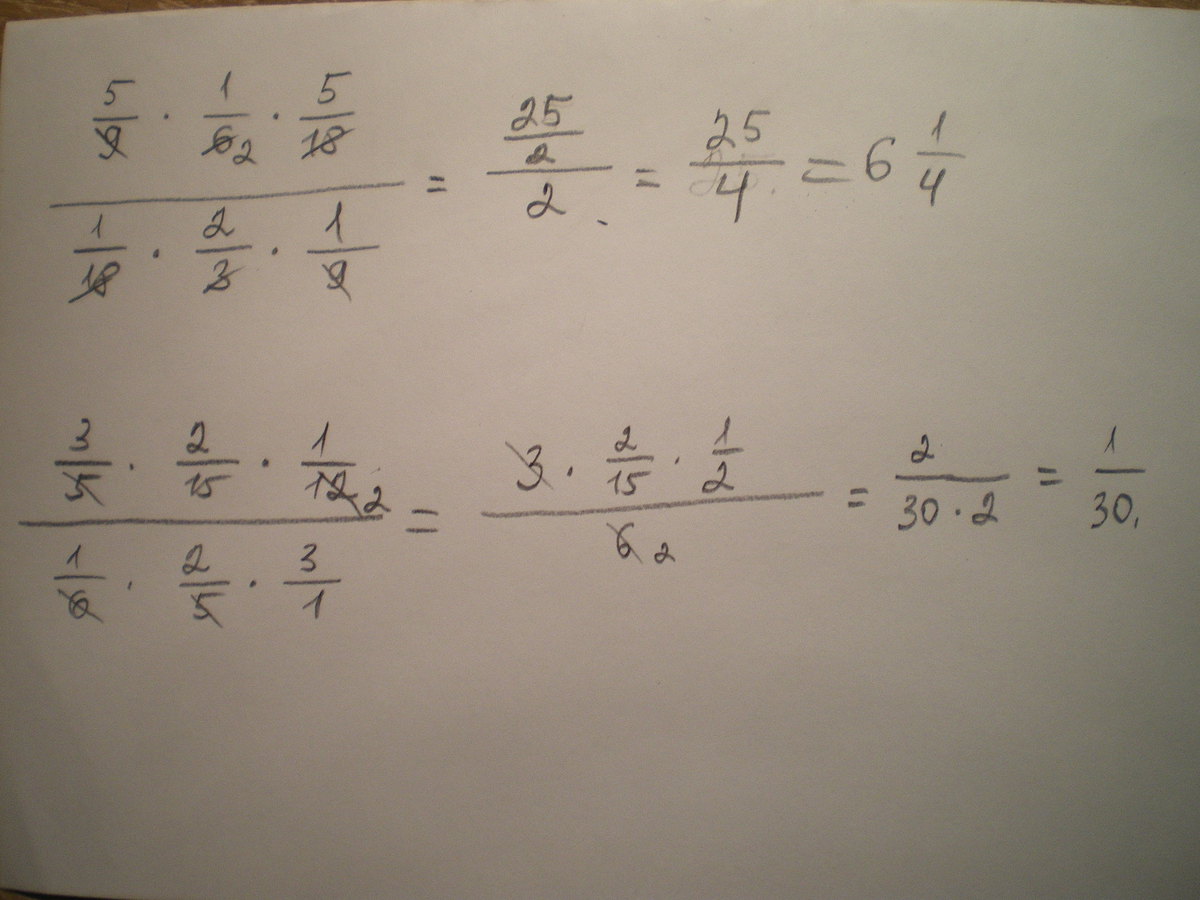 5/9 · 1/6 2 · 5/18
1/18 · 2/3 · 1/9
= 25/2 / 2 = 25/4 = 6 1/4
3/5 · 2/15 · 1/12 2
1/6 · 2/5 · 3/1
= 3 · 2/15 · 1/2 / 6 2 = 2/30 · 2 = 1/30.